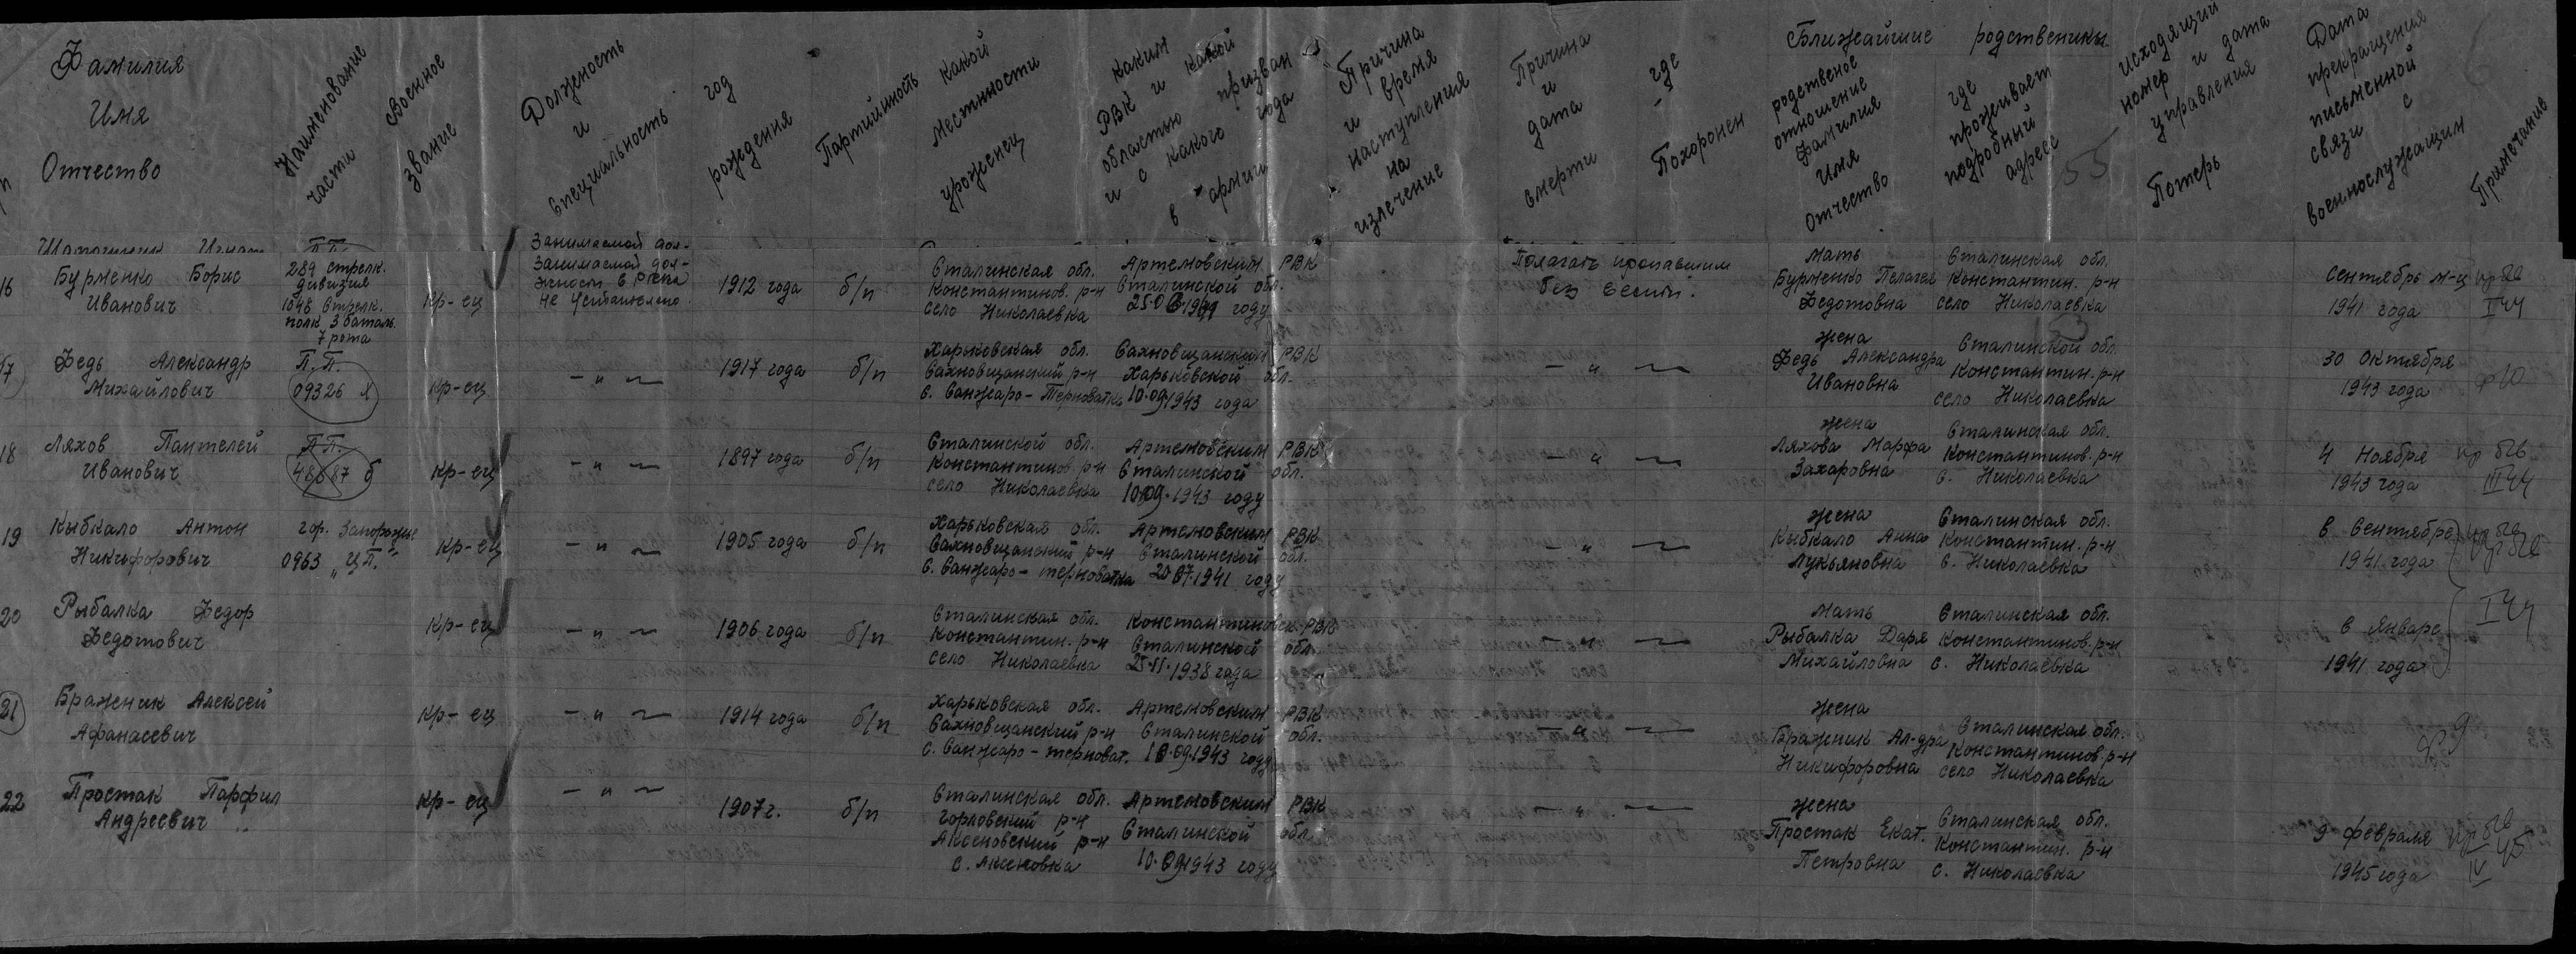 Фамилия
Имя
Отчество
Наименование
части
Военное
звание
Должность
и
специальность
год
рождения
Партийность
какой
местности
уроженец
каким
РВК и какой
областью призван
и с какого года
в армии
Причина
и время
наступления
на
излечение
Причина
и
дата
смерти
где
Похоронен
Ближайшие родственики
родственое
отношение
Фамилия
Имя
Отчество
где
проживает
подробный
адресс
55
исходящий
номер и дата
управления
Потерь
Дата
прекращения
письменной
связи
с
военнослужащим
Примечание
Занимаемой дол-
16 Бурменко Борис
Иванович
289 стрелк.
дивизия
1048 Стрелк.
полк 3 баталь.
7 рота
кр-ец
Занимаемой дол-
не установлено
1912 года
б/п
Сталинская обл.
Константинов. р-н
село Николаевка
Артемовским РВК
Сталинской обл.
1941 году
Полагать пропавшим
без
мать
Бурменко Пелагея
Федотовна
Сталинская обл.
Константин. р-н
село Николаевка
Сентябрь м-ц
1941 года
17 Федь Александр
Михайлович
П.П.
09326 Я
кр-ец
— " —
1917 года
б/п
Харьковская обл.
Сахновщанский р-н
с. Санжаро-Терноватка
Сахновщанским РВК
Харьковской обл.
10.09.1943 года
— " —
жена
Федь Александра
Ивановна
Сталинской обл.
Константин. р-н
село Николаевка
30 Октября
1943 года
18 Ляхов Пантелей
Иванович
П.П.
48687 б
кр-ец
— " —
1897 года
б/п
Сталинской обл.
Константинов. р-н
село Николаевка
Артемовским РВК
Сталинской обл.
10.09.1943 году
— " —
жена
Ляхова Марфа
Захаровна
Сталинская обл.
Константинов. р-н
с. Николаевка
4 Ноября
1943 года
19 Кыбкало Антон
Никифорович
гор. Запорожье
0963 „ЦП."
кр-ец
— " —
1905 года
б/п
Харьковская обл.
Сахновщанский р-н
с. Санжаро-терноватка
Артемовским РВК
Сталинской обл.
20.07.1941 году
— " —
жена
Кыбкало Анна
Лукьяновна
Сталинская обл.
Константин. р-н
с. Николаевка
в Сентябре
1941 года
20 Рыбалка Федор
Федотович
кр-ец
— " —
1906 года
б/п
Сталинская обл.
Константин. р-н
село Николаевка
Константиновск. РВК
Сталинской обл.
25.11.1938 года
— " —
мать
Рыбалка Даря
Михайловна
Сталинская обл.
Константинов. р-н
с. Николаевка
в Январе
1941 года
21 Бражник Алексей
Афанасевич
кр-ец
— " —
1914 года
б/п
Харьковская обл.
Сахновщанский р-н
с. Санжаро-терноват.
Артемовским РВК
Сталинской обл.
10.09.1943 году
— " —
жена
Бражник Ал-дра
Никифоровна
Сталинская обл.
Константинов. р-н
село Николаевка
22 Простак Парфил
Андреевич
кр-ец
— " —
1907 г.
б/п
Сталинская обл.
Горловский р-н
Аксеновский р-н
с. Аксеновка
Артемовским РВК
Сталинской обл.
10.09.1943 году
— " —
жена
Простак Екат.
Петровна
Сталинская обл.
Константин. р-н
с. Николаевка
9 февраля
1945 года